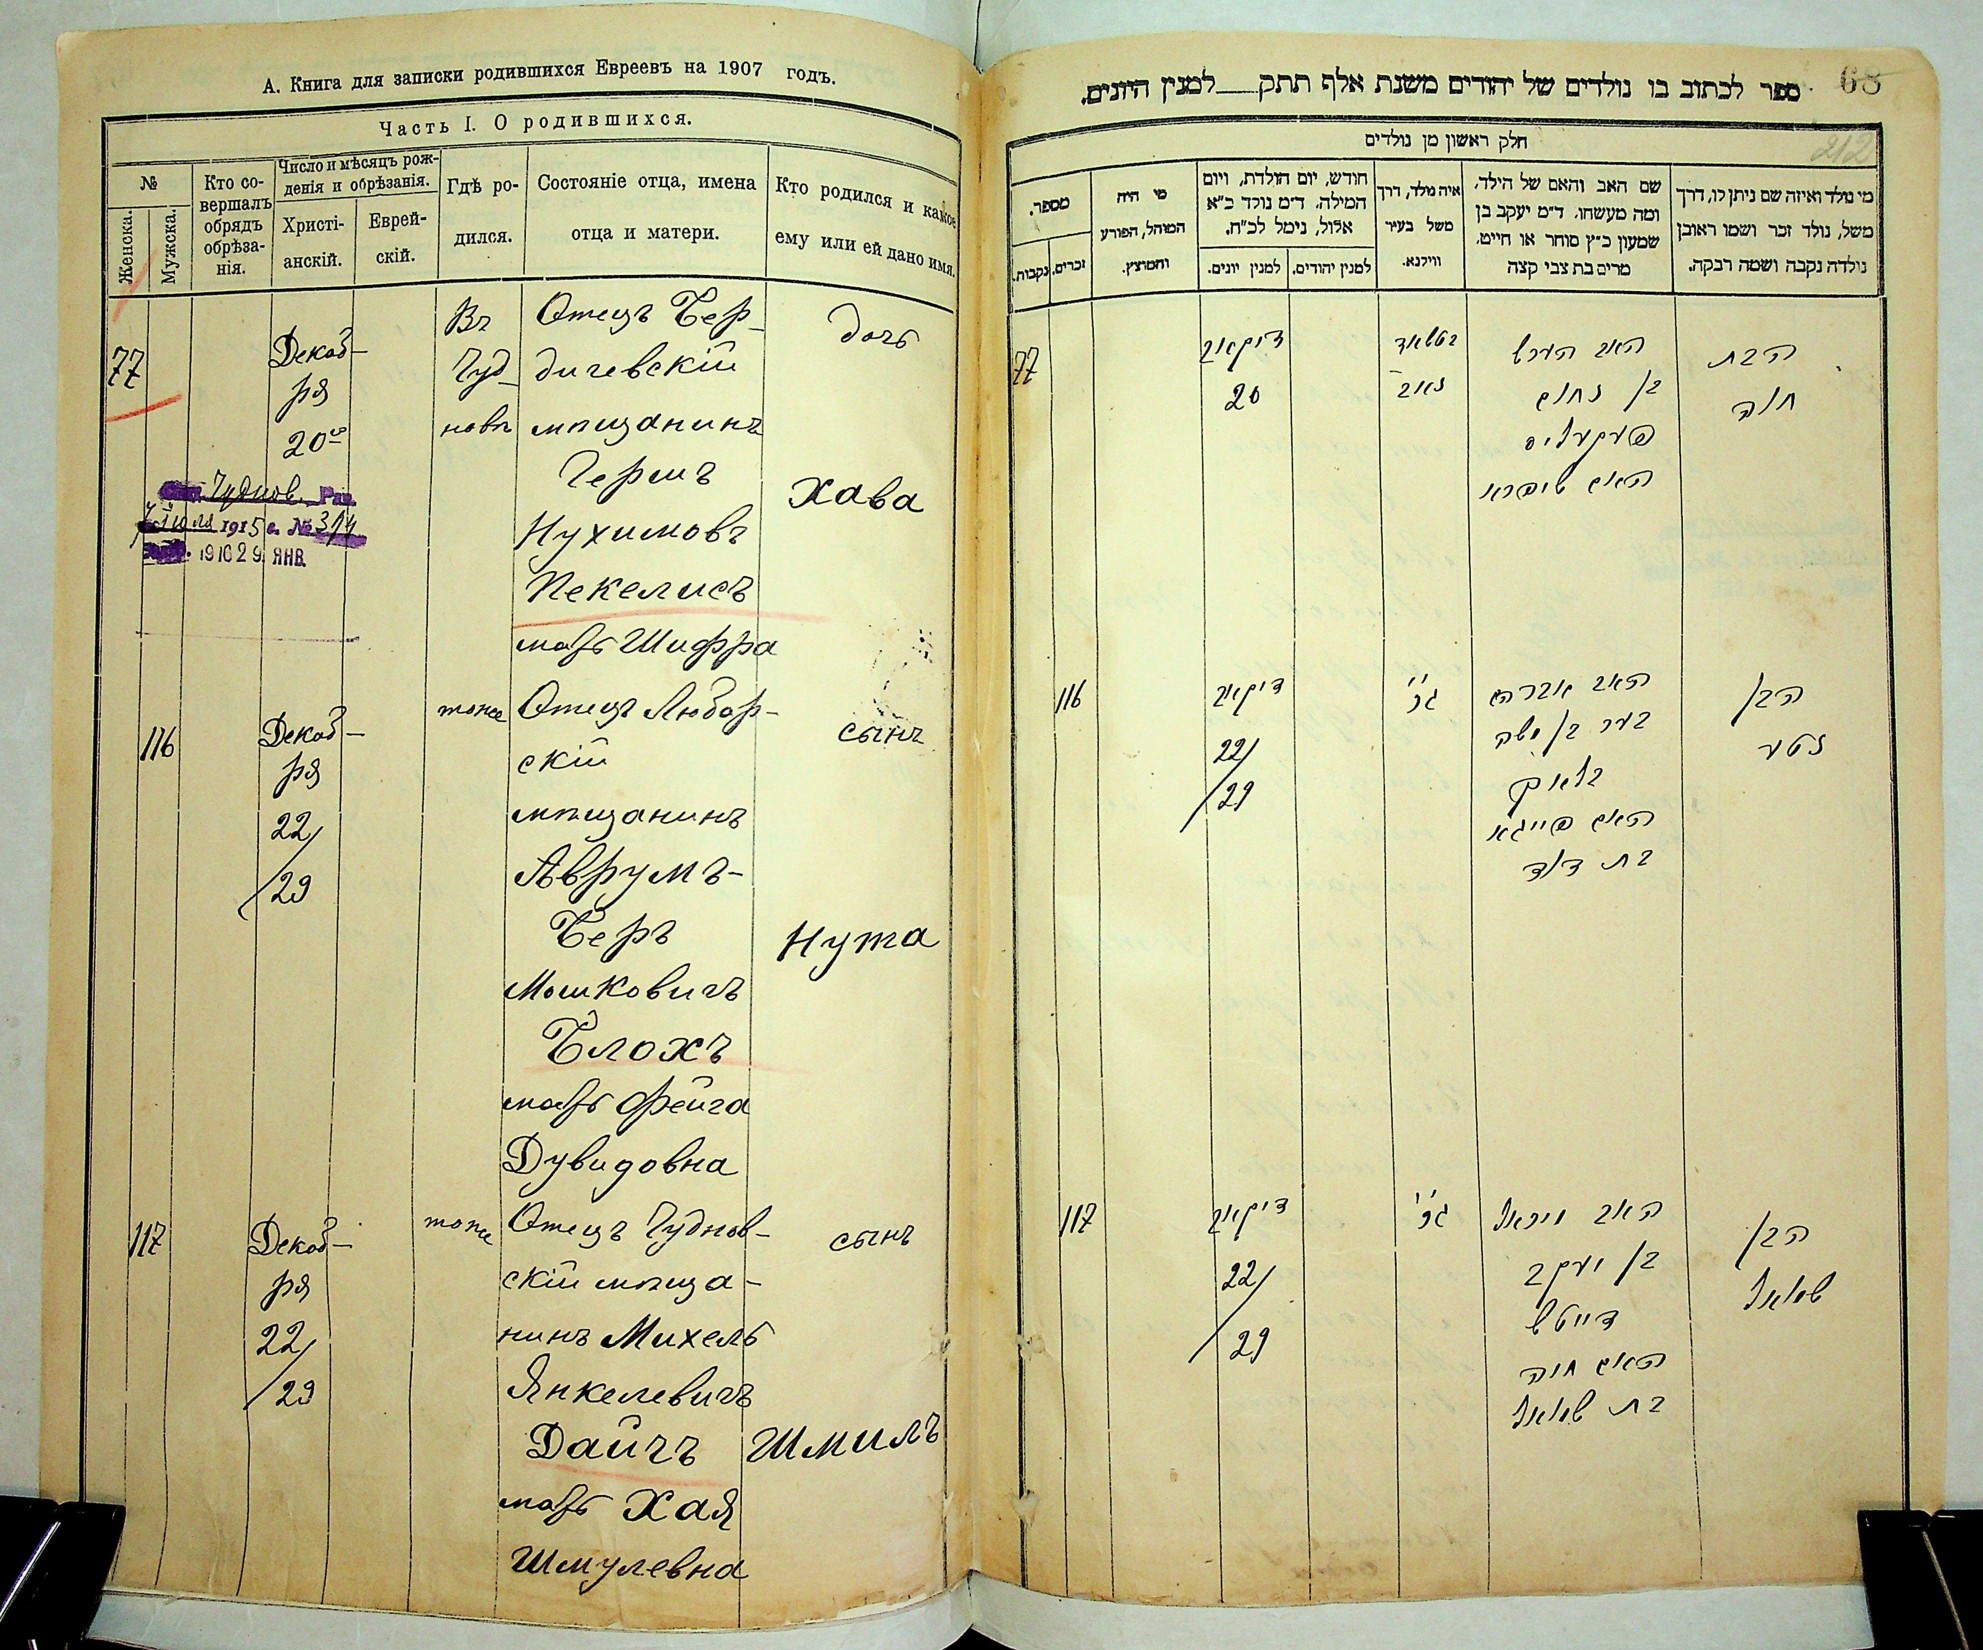 А. Книга для записки родившихся Евреевъ на 1907 годъ.
Часть I. О родившихся.
№
Женска.
Мужска.
Кто со-
вершалъ
обрядъ
обрѣза-
нія.
Число и мѣсяцъ рож-
денія и обрѣзанія.
Христі-
анскій.
Еврей-
скій.
Гдѣ ро-
дился.
Состояніе отца, имена
отца и матери.
Кто родился и какое
ему или ей дано имя.
77
Декаб-
ря
20го
Въ
Чуд-
новѣ
Отецъ Бер-
дичевскій
мѣщанинъ
Гершъ
Нухимовъ
Пекелисъ
мать Шифра
дочь
Хава
Чуднов. Рав.
Іюля 1915 г. № 314
1916 29 ЯНВ.
116
Декаб-
ря
22/
/29
тоже
Отецъ Любар-
скій
мѣщанинъ
Аврумъ-
Беръ
Мошковичъ
Блохъ
мать Фейга
Дувидовна
сынъ
Нута
117
Декаб-
ря
22/
/29
тоже
Отецъ Чуднов-
скій мѣща-
нинъ Михель
Янкелевичъ
Дайчъ
мать Хая
Шмулевна
сынъ
Шмилъ
68
212
ספר לכתוב בו נולדים של יהודים משנת אלף תתק___למנין היונים.
חלק ראשון מן נולדים
מספר.
נקבות.
זכרים.
מי היה
המוהל, הפורע
והמוצץ.
חודש, יום הולדת, ויום
המילה, ד״מ נולד כ״א
אלול, נימל לכ״ח.
למנין יונים.
למנין יהודים.
איה נולד, דרך
משל בעיר
ווילנא.
שם האב והאם של הילד,
ומה מעשהו. ד״מ יעקב בן
שמעון כ״ץ סוחר או חייט.
מרים בת צבי קצה
מי נולד ואיזה שם ניתן לו, דרך
משל, נולד זכר ושמו ראובן
נולדה נקבה ושמה רבקה.
77
דיקאב
20
האב הערש
בן נחום
פעקעליס
האם שיפרא
הבת
חוה
116
דיקאב
22/
/29
האב אברהם
בער בן משה
בלאך
האם פייגא
בת דוד
הבן
נטע
117
דיקאב
22/
/29
האב מיכאל
בן יעקב
דייטש
האם חיה
בת שמואל
הבן
שמואל